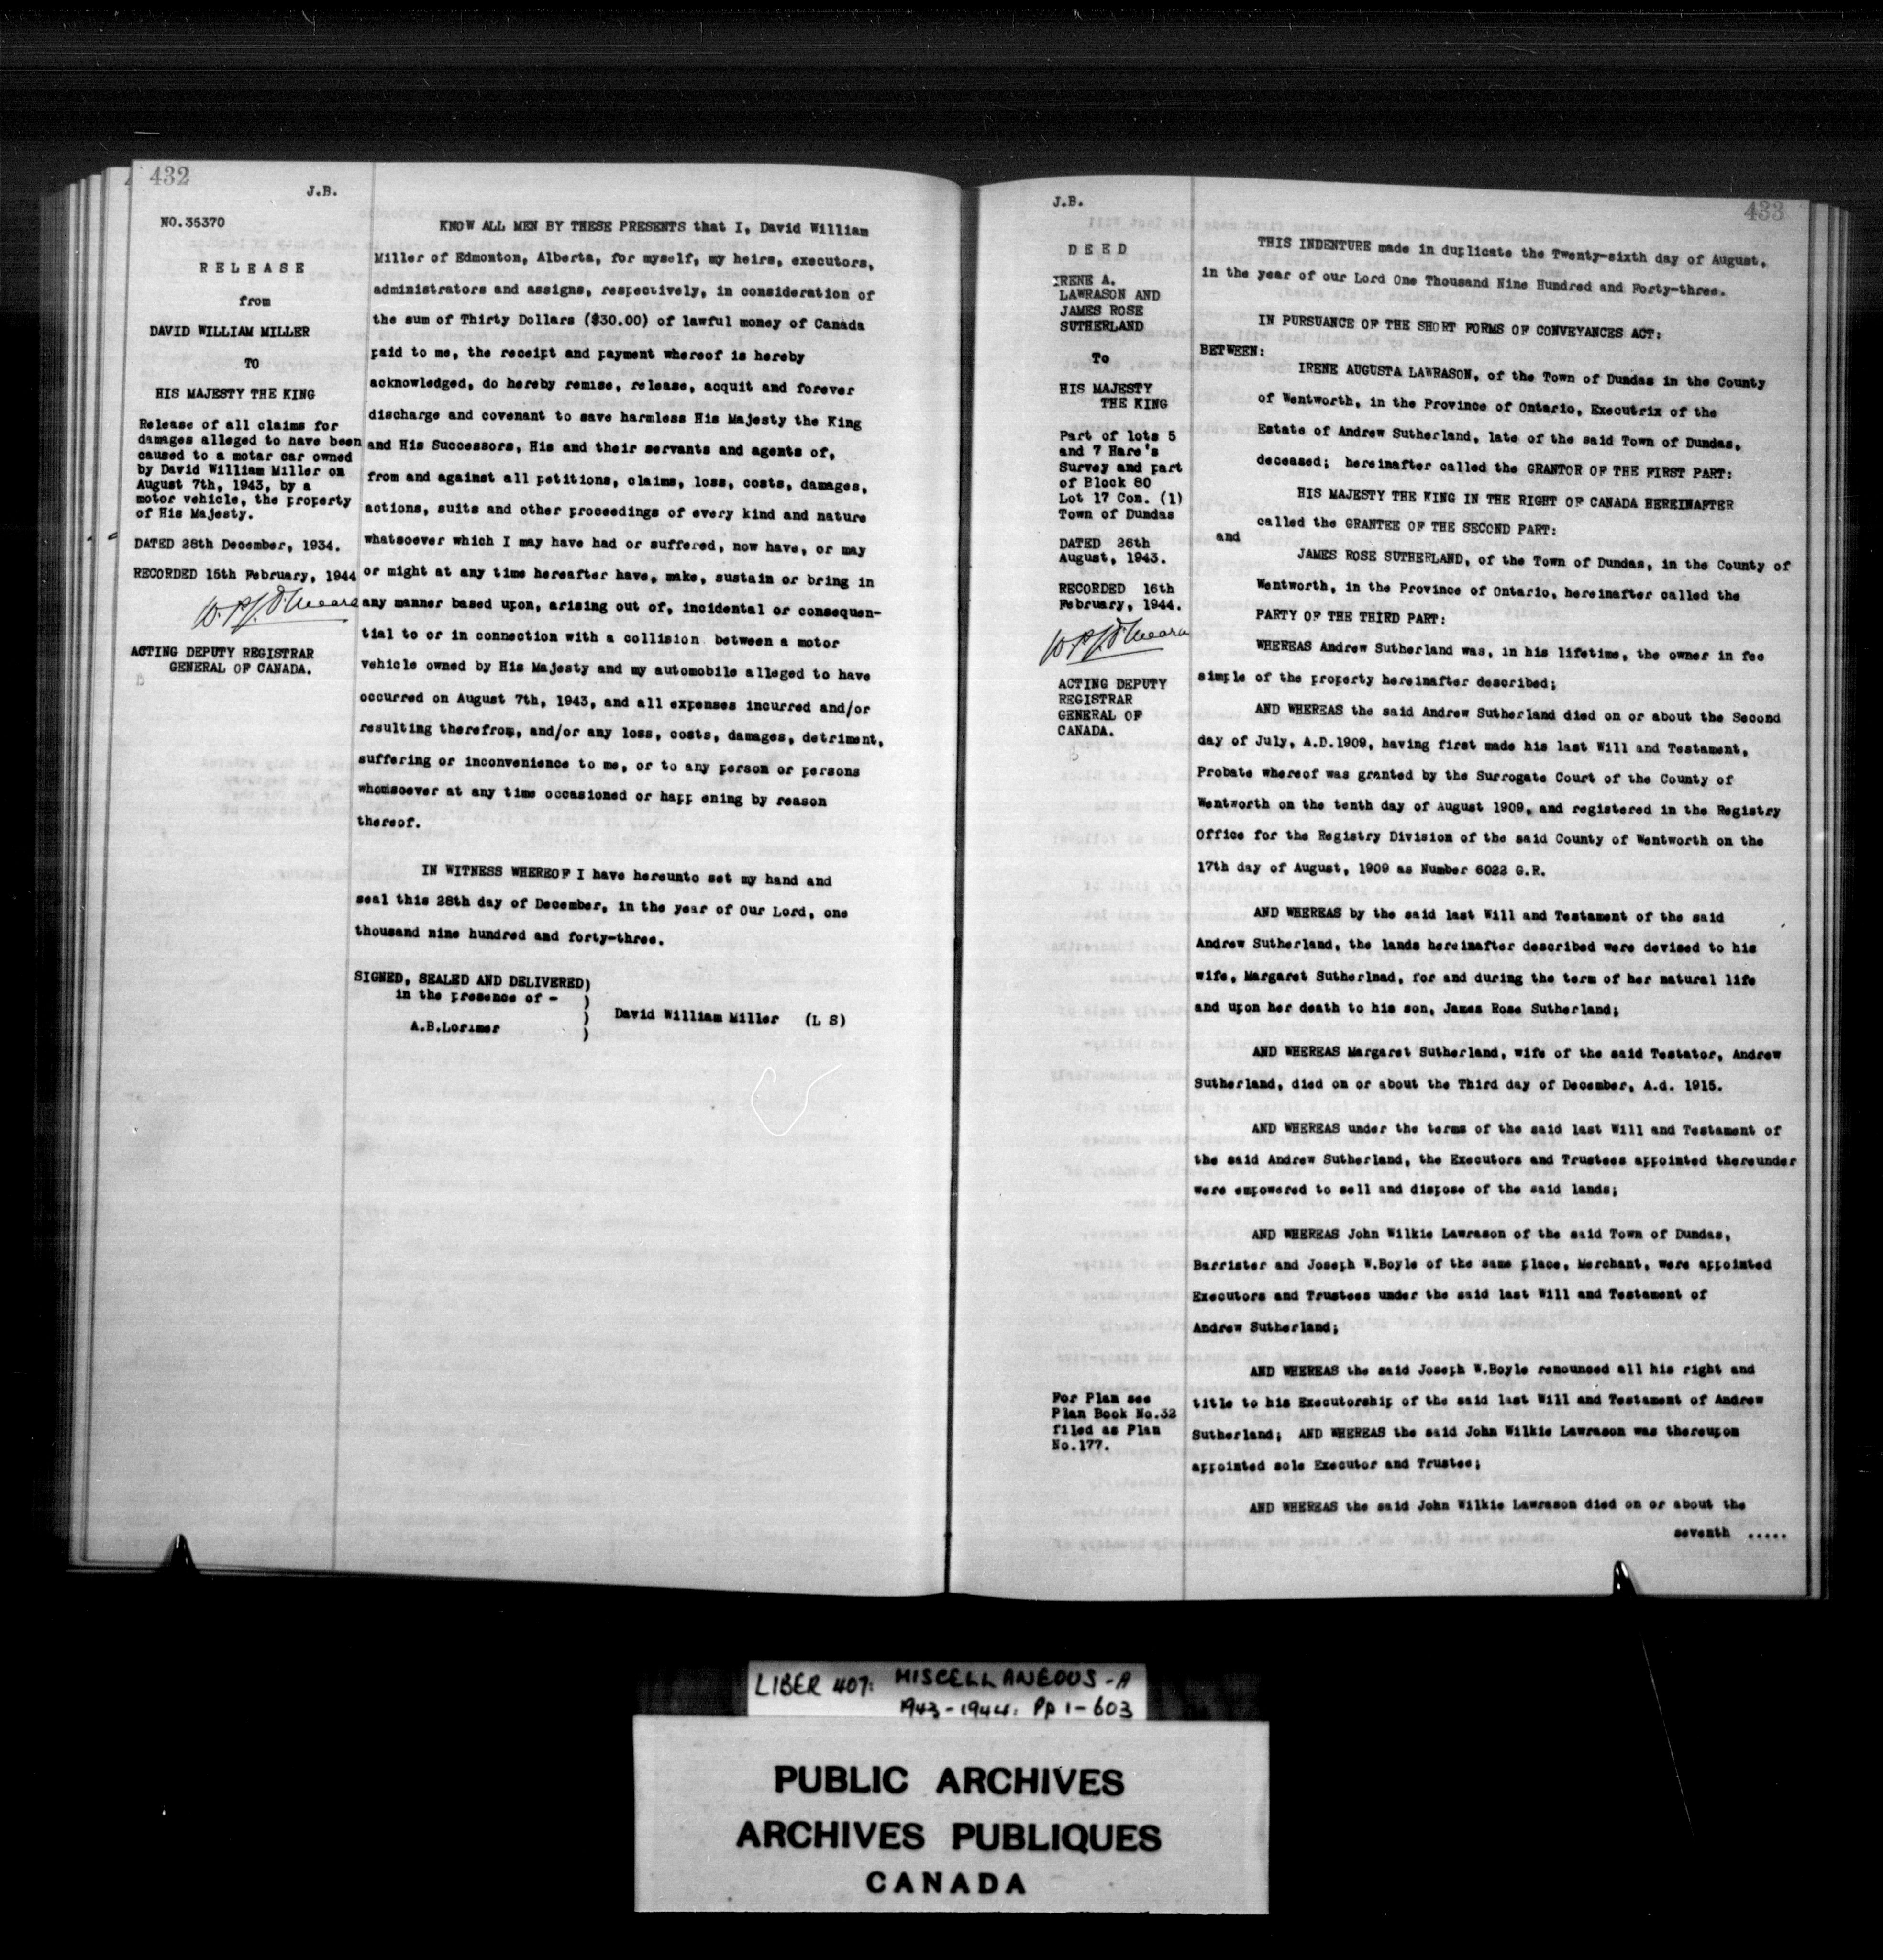 432
J.B.
NO.35370
RELEASE
from
DAVID WILLIAM MILLER
TO
HIS MAJESTY THE KING
Release of all claims for
damages alleged to have been
caused to a motar car owned
by David William Miller on
August 7th, 1943, by a
motor vehicle, the property
of His Majesty.
DATED 28th December, 1934.
RECORDED 15th February, 1944
ACTING DEPUTY REGISTRAR
GENERAL OF CANADA.
KNOW ALL MEN BY THESE PRESENTS that I, David William
Miller of Edmonton, Alberta, for myself, my heirs, executors,
administrators and assigns, respectively, in consideration of
the sum of Thirty Dollars ($30.00) of lawful money of Canada
paid to me, the receipt and payment whereof is hereby
acknowledged, do hereby remise, release, acquit and forever
discharge and covenant to save harmless His Majesty the King
and His Successors, His and their servants and agents of,
from and against all petitions, claims, loss, costs, damages,
actions, suits and other proceedings of every kind and nature
whatsoever which I may have had or suffered, now have, or may
or might at any time hereafter have, make, sustain or bring in
any manner based upon, arising out of, incidental or consequen-
tial to or in connection with a collision between a motor
vehicle owned by His Majesty and my automobile alleged to have
occurred on August 7th, 1943, and all expenses incurred and/or
resulting therefrom, and/or any loss, costs, damages, detriment,
suffering or inconvenience to me, or to any person or persons
whomsoever at any time occasioned or happ ening by reason
thereof.
IN WITNESS WHEREOF I have hereunto set my hand and
seal this 28th day of December, in the year of Our Lord, one
thousand nine hundred and forty-three.
SIGNED, SEALED AND DELIVERED)
in the presence of - )
) David William Miller (L S)
A.B.Lorimer )
J.B.
433
DEED
IRENE A.
LAWRASON AND
JAMES ROSE
SUTHERLAND
To
HIS MAJESTY
THE KING
Part of lots 5
and 7 Hare's
Survey and part
of Block 80
Lot 17 Con. (1)
Town of Dundas
DATED 26th
August, 1943.
RECORDED 16th
February, 1944.
ACTING DEPUTY
REGISTRAR
GENERAL OF
CANADA.
For Plan see
Plan Book No.32
filed as Plan
No.177.
THIS INDENTURE made in duplicate the Twenty-sixth day of August,
in the year of our Lord One Thousand Nine Hundred and Forty-three.
IN PURSUANCE OF THE SHORT FORMS OF CONVEYANCES ACT:
BETWEEN:
IRENE AUGUSTA LAWRASON, of the Town of Dundas in the County
of Wentworth, in the Province of Ontario, Executrix of the
Estate of Andrew Sutherland, late of the said Town of Dundas,
deceased; hereinafter called the GRANTOR OF THE FIRST PART:
HIS MAJESTY THE KING IN THE RIGHT OF CANADA HEREINAFTER
called the GRANTEE OF THE SECOND PART:
and
JAMES ROSE SUTHERLAND, of the Town of Dundas, in the County of
Wentworth, in the Province of Ontario, hereinafter called the
PARTY OF THE THIRD PART:
WHEREAS Andrew Sutherland was, in his lifetime, the owner in fee
simple of the property hereinafter described;
AND WHEREAS the said Andrew Sutherland died on or about the Second
day of July, A.D.1909, having first made his last Will and Testament,
Probate whereof was granted by the Surrogate Court of the County of
Wentworth on the tenth day of August 1909, and registered in the Registry
Office for the Registry Division of the said County of Wentworth on the
17th day of August, 1909 as Number 6022 G.R.
AND WHEREAS by the said last Will and Testament of the said
Andrew Sutherland, the lands hereinafter described were devised to his
wife, Margaret Sutherlnad, for and during the term of her natural life
and upon her death to his son, James Rose Sutherland;
AND WHEREAS Margaret Sutherland, wife of the said Testator, Andrew
Sutherland, died on or about the Third day of December, A.d. 1915.
AND WHEREAS under the terms of the said last Will and Testament of
the said Andrew Sutherland, the Executors and Trustees appointed thereunder
were empowered to sell and dispose of the said lands;
AND WHEREAS John Wilkie Lawrason of the said Town of Dundas,
Barrister and Joseph W.Boyle of the same place, Merchant, were appointed
Executors and Trustees under the said last Will and Testament of
Andrew Sutherland;
AND WHEREAS the said Joseph W.Boyle renounced all his right and
title to his Executorship of the said last Will and Testament of Andrew
Sutherland; AND WHEREAS the said John Wilkie Lawrason was thereupon
appointed sole Executor and Trustee;
AND WHEREAS the said John Wilkie Lawrason died on or about the
seventh .....
LIBER 407: MISCELLANEOUS-A
1943-1944: Pp 1-603
PUBLIC ARCHIVES
ARCHIVES PUBLIQUES
CANADA